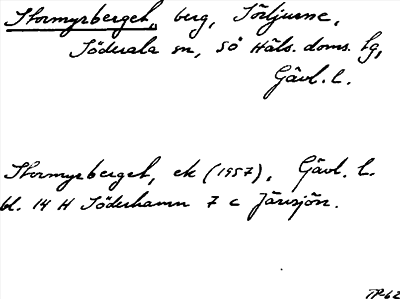 Stormyrberget, berg, Sörljusne,
Söderala sn, Sö Häls. doms. tg,
Gävl. l.
Stormyrberget, ek (1957), Gävl. l.
bl. 14 H Söderhamn 7 c Järvsjön.
TP-62